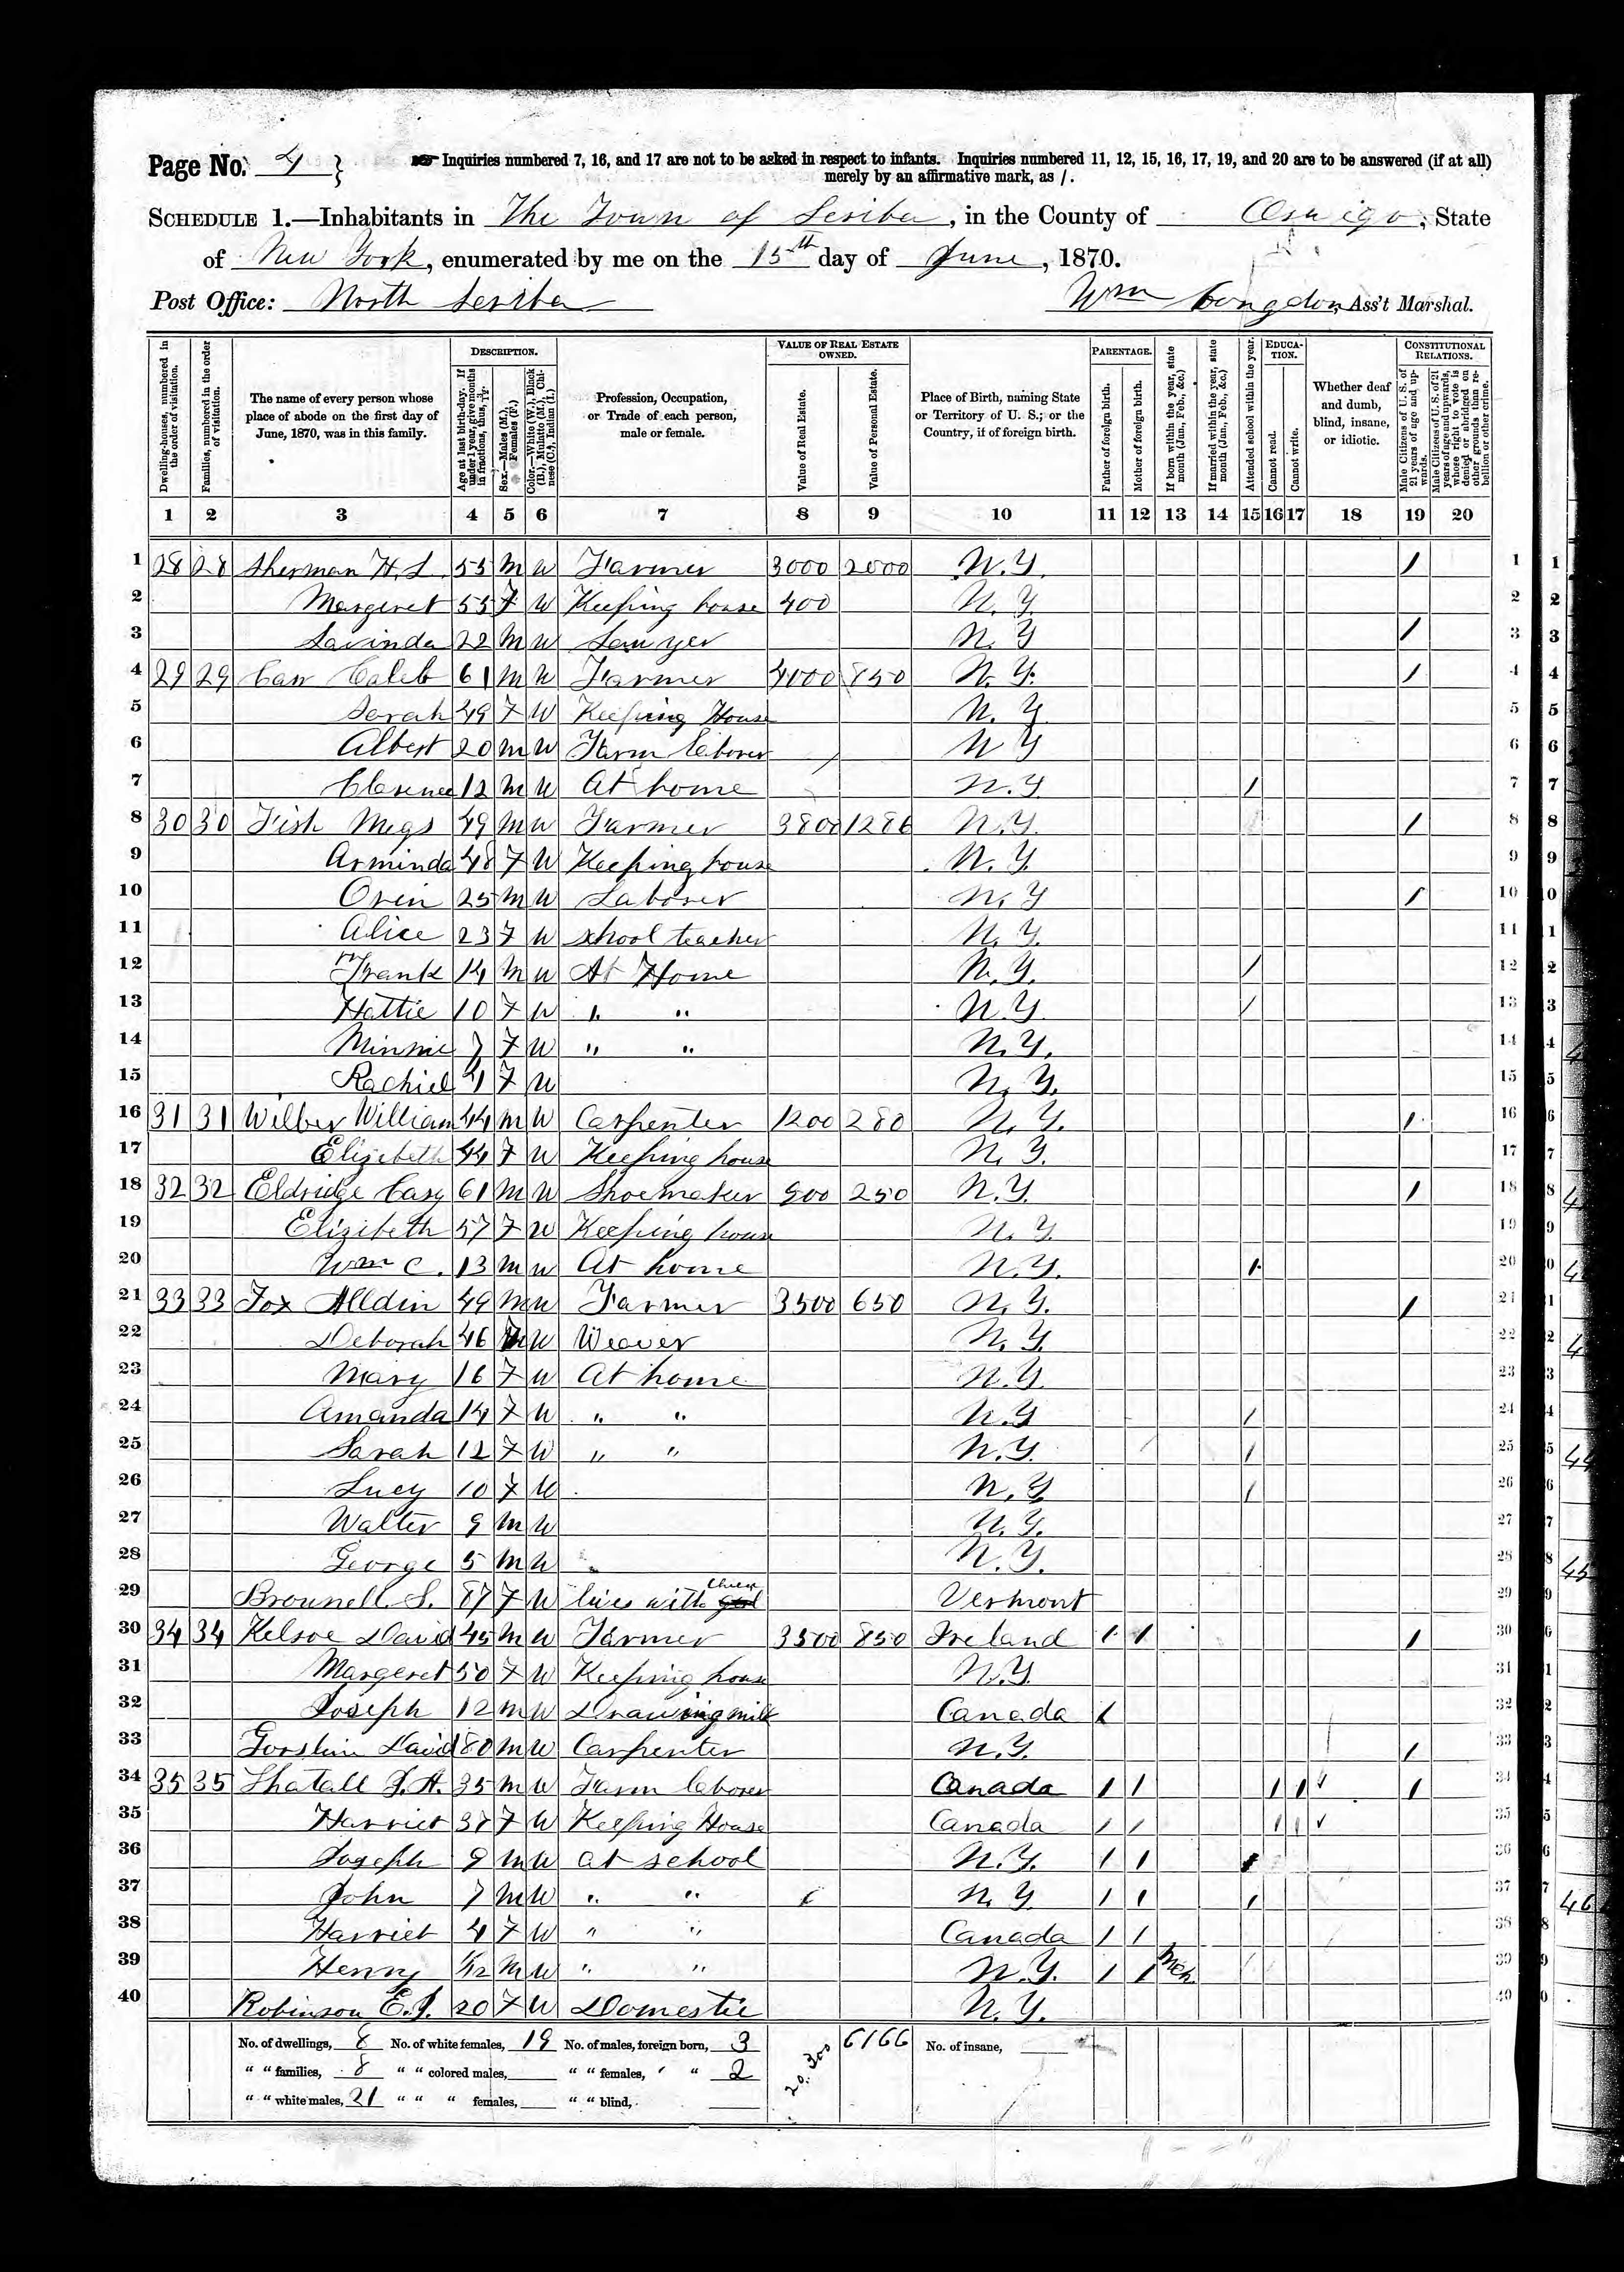 Page No. 4 } Inquiries numbered 7, 16, and 17 are not to be asked in respect to infants. Inquiries numbered 11, 12, 15, 16, 17, 19, and 20 are to be answered (if at all)
merely by an affirmative mark, as /.
SCHEDULE 1.—Inhabitants in The Town of Scriba, in the County of Oswego, State
of New York, enumerated by me on the 15th day of June, 1870.
Post Office: North Scriba Wm Congdon, Ass't Marshal.
Dwelling-houses, numbered in the order of visitation.
Families, numbered in the order of visitation.
The name of every person whose place of abode on the first day of June, 1870, was in this family.
DESCRIPTION.
Age at last birth-day. If under 1 year, give months in fractions, thus, 3/12.
Sex.—Males (M.), Females (F.)
Color.—White (W.), Black (B.), Mulatto (M.), Chinese (C.), Indian (I.)
Profession, Occupation, or Trade of each person, male or female.
VALUE OF REAL ESTATE OWNED.
Value of Real Estate.
Value of Personal Estate.
Place of Birth, naming State or Territory of U. S.; or the Country, if of foreign birth.
PARENTAGE.
Father of foreign birth.
Mother of foreign birth.
If born within the year, state month (Jan., Feb., &c.)
If married within the year, state month (Jan., Feb., &c.)
Attended school within the year.
EDUCATION.
Cannot read.
Cannot write.
Whether deaf and dumb, blind, insane, or idiotic.
CONSTITUTIONAL RELATIONS.
Male Citizens of U. S. of 21 years of age and upwards.
Male Citizens of U. S. of 21 years of age and upwards, whose right to vote is denied or abridged on other grounds than rebellion or other crime.
1 2 3 4 5 6 7 8 9 10 11 12 13 14 15 16 17 18 19 20
1 28 28 Sherman H. S. 55 M W Farmer 3000 2000 N.Y. / 1
2 Margeret 55 F W Keeping house 400 N.Y. 2
3 22 M W Sawyer N.Y / 3
4 29 29 Carr Caleb 61 M W Farmer 4000 850 N.Y. / 4
5 Sarah 49 F W Keeping House N.Y. 5
6 Albert 20 M W Farm laborer N Y 6
7 Clarence 12 M W At home N.Y. / 7
8 30 30 Fish Megs 49 M W Farmer 3800 1286 N.Y. / 8
9 Arminda 48 F W Keeping house N.Y. 9
10 Orin 25 M W Laborer N.Y / 10
11 Alice 23 F W School teacher N.Y. 11
12 Frank 14 M W At Home N.Y. / 12
13 Hattie 10 F W " " N.Y. / 13
14 Minnie 7 F W " " N.Y. 14
15 Rachiel 4 F W N.Y. 15
16 31 31 Wilber William 44 M W Carpenter 1200 280 N.Y. / 16
17 Elizebeth 44 F W Keeping house N.Y. 17
18 32 32 Eldridge Casy 61 M W Shoemaker 500 250 N.Y. / 18
19 Elizibeth 57 F W Keeping house N.Y. 19
20 Wm C. 13 M W At home N.Y. / 20
21 33 33 Fox Alldin 49 M W Farmer 3500 650 N.Y. / 21
22 Deborah 46 F W Weaver N.Y. 22
23 Mary 16 F W At home N.Y. 23
24 Amanda 14 F W " " N.Y / 24
25 Sarah 12 F W " " N.Y. / 25
26 Lucy 10 F W N.Y. / 26
27 Walter 9 M W N.Y. 27
28 George 5 M W " N.Y. 28
29 Brounell S. 87 F W lives with Vermont 29
30 34 34 Kelsoe David 45 M W Farmer 3500 850 Ireland / / / 30
31 Margeret 50 F W Keeping house N.Y. 31
32 Joseph 12 M W Drawing milk Canada / 32
33 Gorslin David 80 M W Carpenter N.Y. / 33
34 35 35 Shatall J. A. 35 M W Farm laborer Canada / / / / / 34
35 Harriet 37 F W Keeping House Canada / / / / 35
36 Joseph 9 M W at school N.Y. / / / 36
37 John 7 M W " " N.Y. / / / 37
38 Harriet 4 F W " " Canada / / 38
39 Henry 1/12 M W " " N.Y. / / Mch 39
40 Robinson E. J. 20 F W Domestic N.Y. 40
No. of dwellings, 8 No. of white females, 19 No. of males, foreign born, 3 20.300 6166 No. of insane,
" " families, 8 " " colored males, " " females, " " 2
" " white males, 21 " " " females, " " blind,